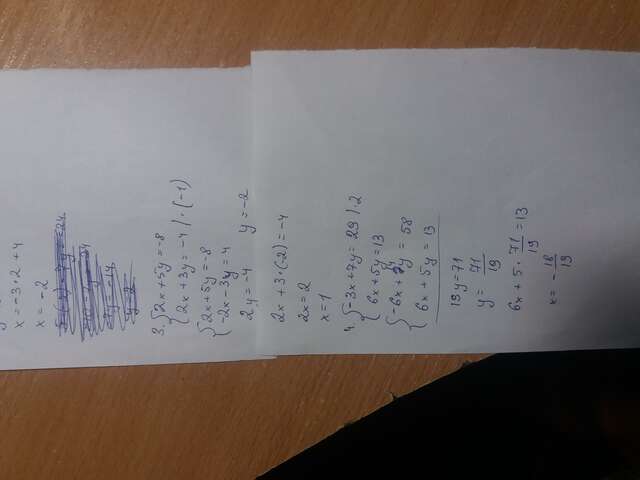 x = -3·2+4
x = -2
3. { 2x+5y=-8
{ 2x+3y=-4 / ·(-1)
{ 2x+5y=-8
{ -2x-3y=4
2y=-4 y=-2
2x+3·(-2)=-4
2x=2
x=1
4. { -3x+7y=29 / ·2
{ 6x+5y=13
{ -6x+14y=58
{ 6x+5y=13
19y=71
y=71/19
6x+5·71/19=13
x=-18/19